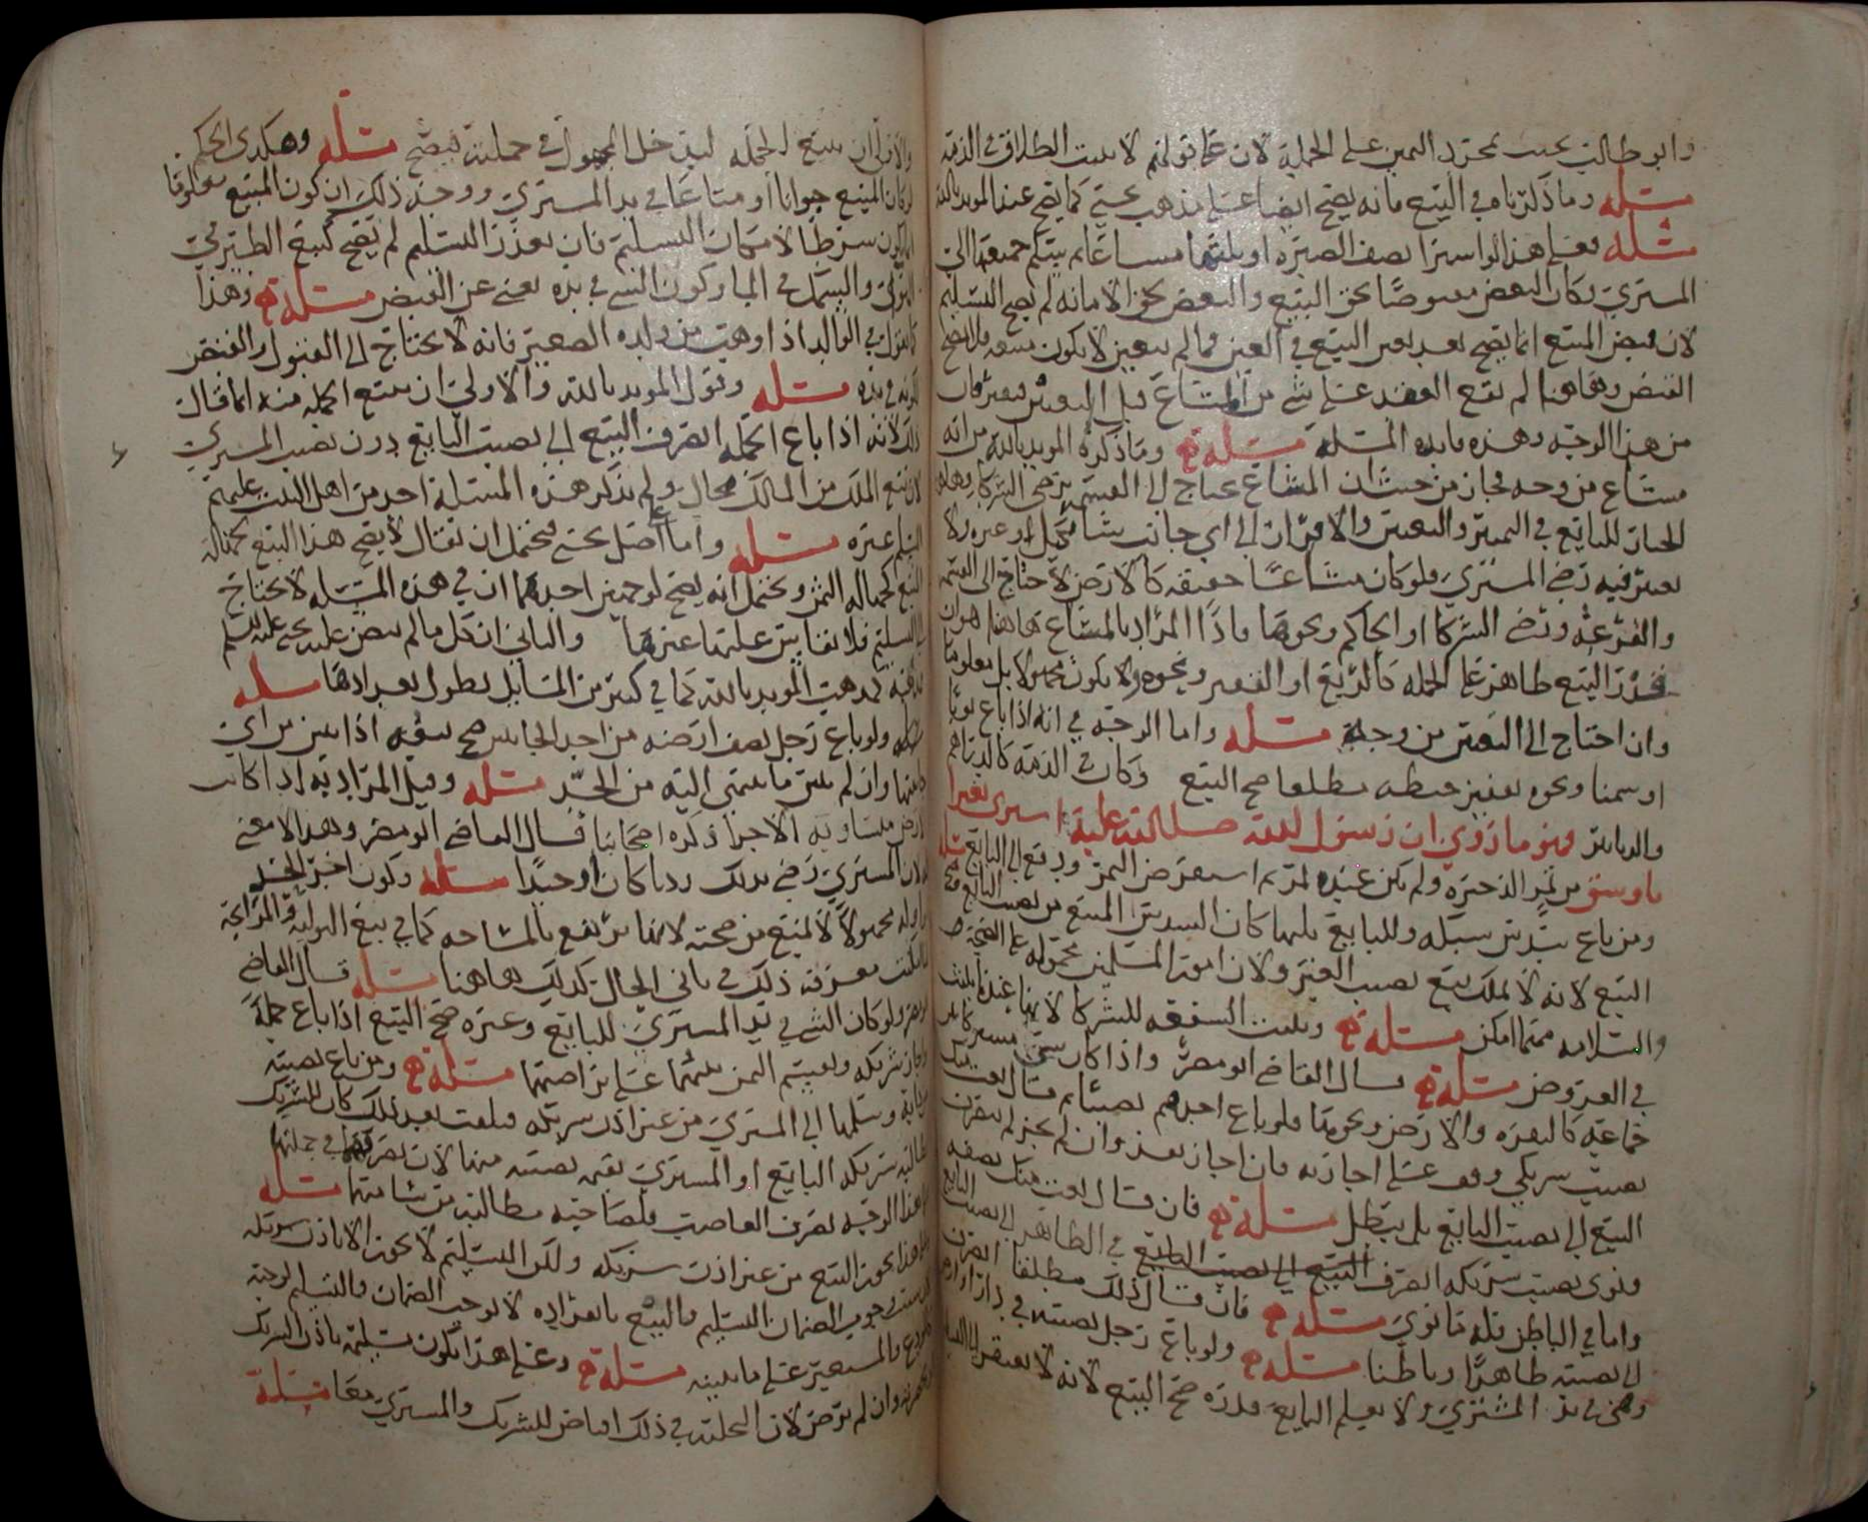 وابو طالب يجب بمجرد اليمين على الحيلة لان على قولهم لا يثبت الطلاق في الذمة
مسئلة وما ذكرناه في البيع فانه يصح ايضا على مذهب يحيى كما يصح عند المويد بالله
مسئلة فعلى هذا لو اشترا نصف الصبرة او ثلثها مشاعا ثم سلم جميعها الى
المشتري فكان البعض مقبوضا بحق البيع والبعض بحق الامانة لم يصح التسليم
لان قبض المبيع انما يصح بعد تعين البيع في العين فما لم يتعين لا يكون
القبض وهاهنا لم يقع العقد على شي من المشاع قبل التعيين
من هذا الوجه وهذه فايدة المسئلة مسئلة وما ذكره المويد بالله من انه
مشاع من وجه فجاز من حيث ان المشاع يحتاج الى القسمة برضى الشركا
الخيار للبايع في التمييز والتعيين والافراز الى اي جانب شا
يعتبر فيه رضى المشتري ولو كان مشاعا حقيقة كالارض لاحتاج الى القسمة
والقرعة ورضى الشركا او الحاكم ونحوها فاذا المراد بالمشاع هاهنا هو ان
قدر البيع ظاهر على الجملة كالربع او القفيز ونحوه ولا يكون مجهولا بل معلوما
وان احتاج الى التعيين من وجه مسئلة واما الوجه في انه اذا باع ثوبا
او سمنا ونحوه بقفيز حنطة مطلقا صح البيع وكان في الذمة كالدراهم
والدنانير فهو ما روي ان رسول الله صلى الله عليه اشترى بعيرا
باوسق من تمر الذخيرة ولم يكن عنده تمر ثم استقرض التمر ودفع الى البايع مسئلة
ومن باع سدس سبله وللبايع ثلثها كان السدس المبيع من نصيب البايع
البيع لانه لا يملك بيع نصيب الغير ولان امور المسلمين محمولة على الصحة
والسلامة مهما امكن مسئلة ويثبت الشفعة للشركا
في العروض مسئلة قال القاضي ابو مضر واذا كان شي
جماعة كالبقرة والارض ونحوها فلو باع احدهم نصيبا ثم قال بعت
نصيب شريكي وقف على اجازته فان اجاز نفذ وان لم يجز لم ينصرف
البيع الى نصيب البايع بل يبطل مسئلة فان قال بعت منك نصفه
ونوى نصيب شريكه انصرف البيع الى نصيب البايع في الظاهر الى نصيب البايع
واما في الباطن فله ما نوى مسئلة فان قال ذلك مطلقا انصرف
الى نصيبه ظاهرا وباطنا مسئلة ولو باع رجل نصيبه في دار
وهي في يد المشتري ولا يعلم البايع قدره صح البيع لانه لا يفتقر الى
والاولى ان يبيع الجملة ليدخل المجهول في جملته فيصح مسئلة وهكذى الحكم
لو كان المبيع حيوانا او متاعا في يد المشتري ووجه ذلك ان كون المبيع معلوما
انما يكون شرطا لامكان التسليم فان تعذر التسليم لم يصح كبيع الطير في
الهوى والسمك في الما وكون الشي في يده يغني عن القبض مسئلة وهذا
كما نقول في الوالد اذا وهب من ولده الصغير فانه لا يحتاج الى القبول والقبض
لكونه في يده مسئلة وقول المويد بالله والاولى ان يبيع الجملة منه انما قال
ذلك لانه اذا باع الجملة انصرف البيع الى نصيب البايع دون نصيب المشتري
لان بيع الملك من المالك محال ولم يذكر هذه المسئلة احد من اهل البيت عليهم
السلام غيره مسئلة واما على اصل يحيى فيحتمل ان يقال لا يصح هذا البيع لجهالة
المبيع كجهالة الثمن ويحتمل انه يصح لوجهين احدهما ان في هذه المسئلة لا يحتاج
الى التسليم فلا يقاس عليها غيرها والثاني ان كل ما لم ينص عليه يحيى عليه السلم
فمذهبه كمذهب المويد بالله كما في كثير من المسايل يطول تعدادها مسئلة
ولو باع رجل نصف ارضه من احد الجانبين صح بيعه اذا بين من اي
جانبها وان لم يبين ما ينتهي اليه من الحد مسئلة وقيل المراد به اذا كانت
الارض متساوية الاجزا ذكره اصحابنا قال القاضي ابو مضر وهذا لا معنى
له لان المشتري رضي بذلك رديا كان او جيدا مسئلة وكون اخير الحد
واوله مجهولا لا يمنع من صحته لانها ترتفع بالمساحة كما في بيع التولية والمرابحة
لما امكنت معرفة ذلك في ثاني الحال كذلك هاهنا مسئلة قال القاضي
ابو مضر ولو كان الشي في يد المشتري للبايع وغيره صح البيع اذا باع جملة
واجاز شريكه ويقسم الثمن بينهما على تراضيهما مسئلة ومن باع نصيبه
وسلمها الى المشتري من غير اذن شريكه فتلفت بعد ذلك كان للشريك
مطالبة شريكه البايع او المشتري بقيمة نصيبه منها لان تصرفهما في جملتها
على هذا الوجه تصرف الغاصب فلصاحبه مطالبة من شا منهما مسئلة
فعلى هذا يجوز البيع من غير اذن شريكه ولكن التسليم لا يجوز الا باذن شريكه
وجوب الضمان التسليم والبيع بانفراده لا يوجب الضمان والتسليم لوجبه
والمستعير على ما بينه مسئلة وعلى هذا يكون تسليمه باذن الشريك
وان لم يرض لان التخلية في ذلك اقباض للشريك والمشتري معا مسئلة